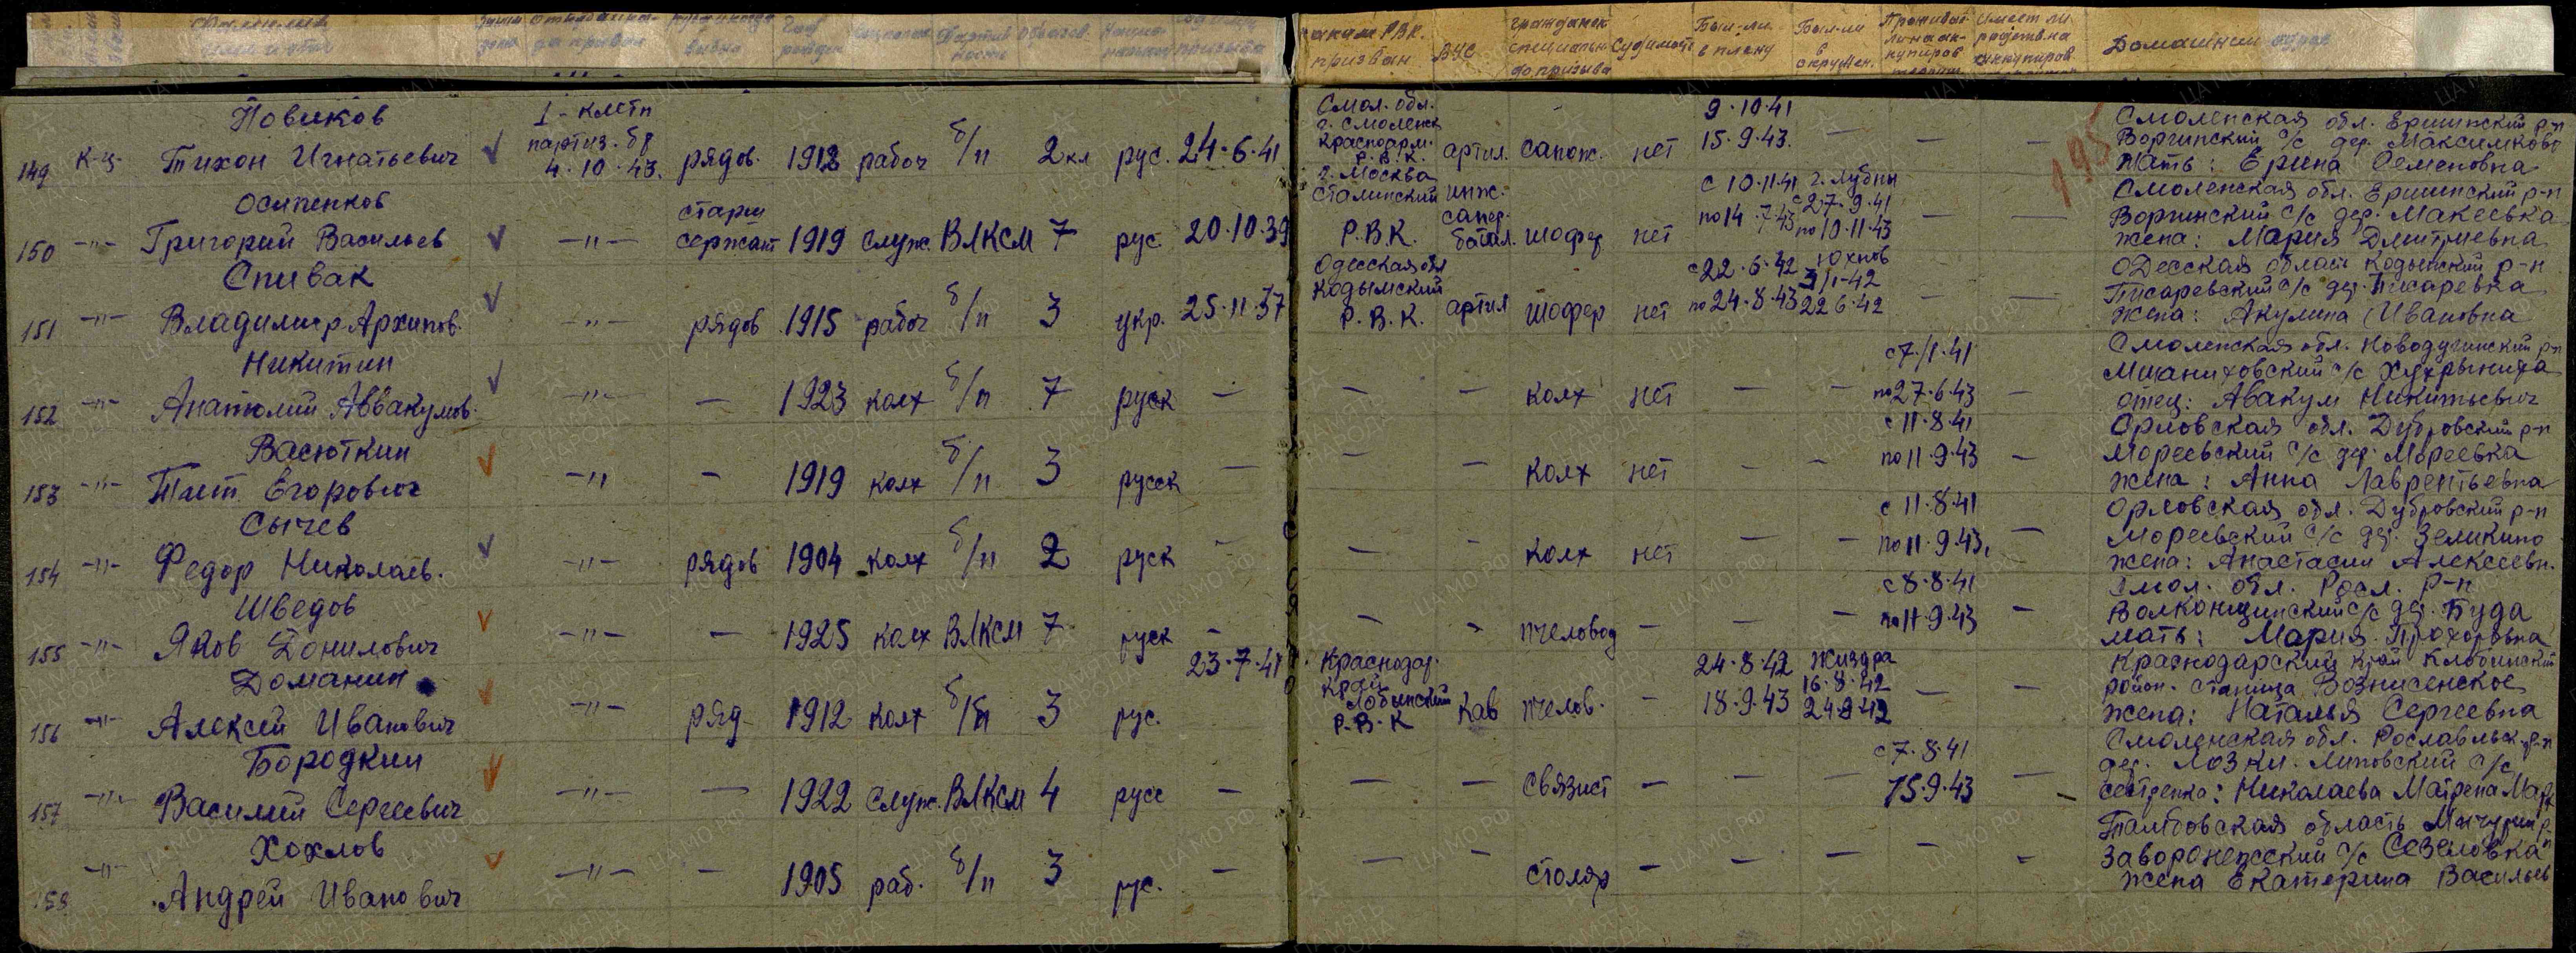 Фамилия
имя и отч.
Каким РВК
призван
ВУС
Гражданск
специальн
до призыва
Судимость
Был-ли
в плену
Был-ли
в
окружен.
Проживал
ли на ок-
купиров
Имеет ли
родств. на
оккупиров
Домашний адрес
195
Новиков
149 К-ц. Тихон Игнатьевич
1-клетп
партиз. бр
4.10.43.
рядов. 1912 рабоч б/п 2кл рус. 24.6.41
Смол. обл.
г. Смоленск
Красноарм.
Р.В.К.
артил. сапож. нет
9.10.41
15.9.43.
— — —
Смоленская обл. Ершичский р-н
Воргинский с/с дер. Максимково
Мать: Ерина Семеновна
Осипенков
150 -"- Григорий Васильев -"-
старш
сержант 1919 служ. ВЛКСМ 7 рус 20.10.39
г. Москва
Сталинский
Р.В.К.
инж.
сапер.
батал. шофер нет
с 10.11.41
по 14.7.43
г. Лубны
с 27.9.41
по 10.11.43
— —
Смоленская обл. Ершичский р-н
Воргинский с/с дер. Макеевка
жена: Мария Дмитриевна
Спивак
151 -"- Владимир Архипов. -"- рядов 1915 рабоч б/п 3 укр. 25.11.37
Одесская обл
Кодымский
Р.В.К.
артил шофер нет
с 22.6.42
по 24.8.43
Юхнов
3/1-42
22 6.42
— —
Одесская област Кодымский р-н
Писаревский с/с дер. Писаревка
Жена: Акулина Ивановна
Никитин
152 -"- Анатолий Аввакумов. -"- — 1923 колх б/п 7 руск —
— — колх нет — —
с 7./1.41
по 27.6.43 —
Смоленская обл. Новодугинский р-н
отец: Авакум Никитьевич
Васюткин
153 -"- Тит Егорович -"- — 1919 колх б/п 3 русск —
— — колх нет — —
с 11.8.41
по 11.9.43 —
Орловская обл. Дубровский р-н
Мореевский с/с дер. Мореевка
жена: Анна Лаврентьевна
Сычев
154 -"- Федор Николаев. -"- рядов 1904 колх б/п 2 руск —
— — колх нет — —
с 11.8.41
по 11.9.43. —
Орловская обл. Дубровский р-н
Мореевский с/с дер. Зеликино
жена: Анастасия Алексеевн.
Шведов
155 -"- Яков Донилович -"- — 1925 колх ВЛКСМ 7 руск —
— — пчеловод — — —
с 8.8.41
по 11.9.43 —
Смол. обл. Росл. р-н
Волконщинский с/с дер. Буда
мать: Мария Прохоровна
Доманин
156 -"- Алексей Иванович -"- ряд 1912 колх б/п 3 рус. 23.7.41
Краснодар.
край
Лобынский
Р.В.К
Кав пчелов. —
24.8.42
18.9.43
Жиздра
16.8.42
24.8.42
— —
Краснодарский край Лобинский
район. станица Вознисенское
жена: Наталья Сергеевна
Бородкин
157 -"- Василий Сергеевич -"- — 1922 служ. ВЛКСМ 4 русс —
— — связист — — —
с 7.8.41
15.9.43 —
Смоленская обл. Рославльск р-н
дер. Лозки. Липовский с/с
сестренка: Николаева Матрена
Хохлов
158 -"- Андрей Иванович -"- — 1905 раб. б/п 3 рус. —
— — столяр — — — — —
Тамбовская область Мичурин р-
Заворонежский с/с Сезеловка
жена Екатерина Васильев